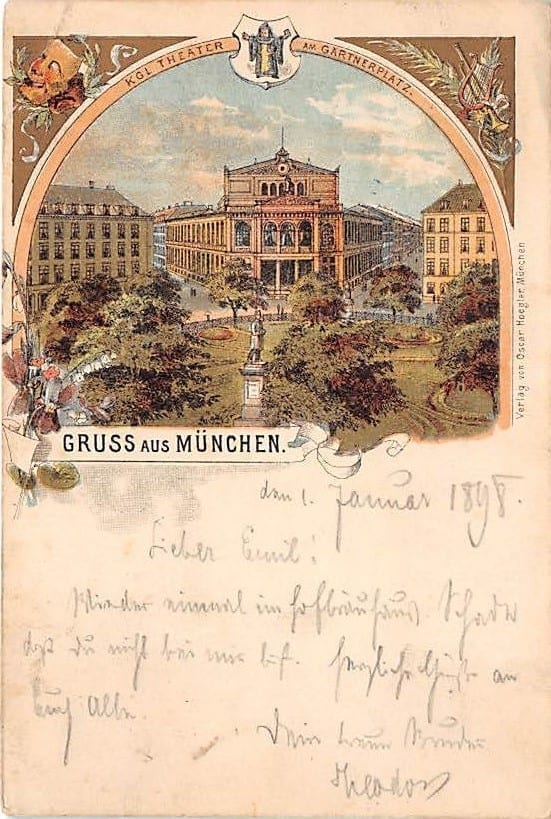 KGL. THEATER AM GÄRTNERPLATZ.
Verlag von Oscar Hoegler, München
GRUSS AUS MÜNCHEN.
den 1. Januar 1898.
Lieber Emil!
Wieder einmal im Hofbräuhaus. Schade
daß du nicht bei mir bist. Herzliche Grüße an
Euch Alle.
Dein treuer Bruder
Theodor